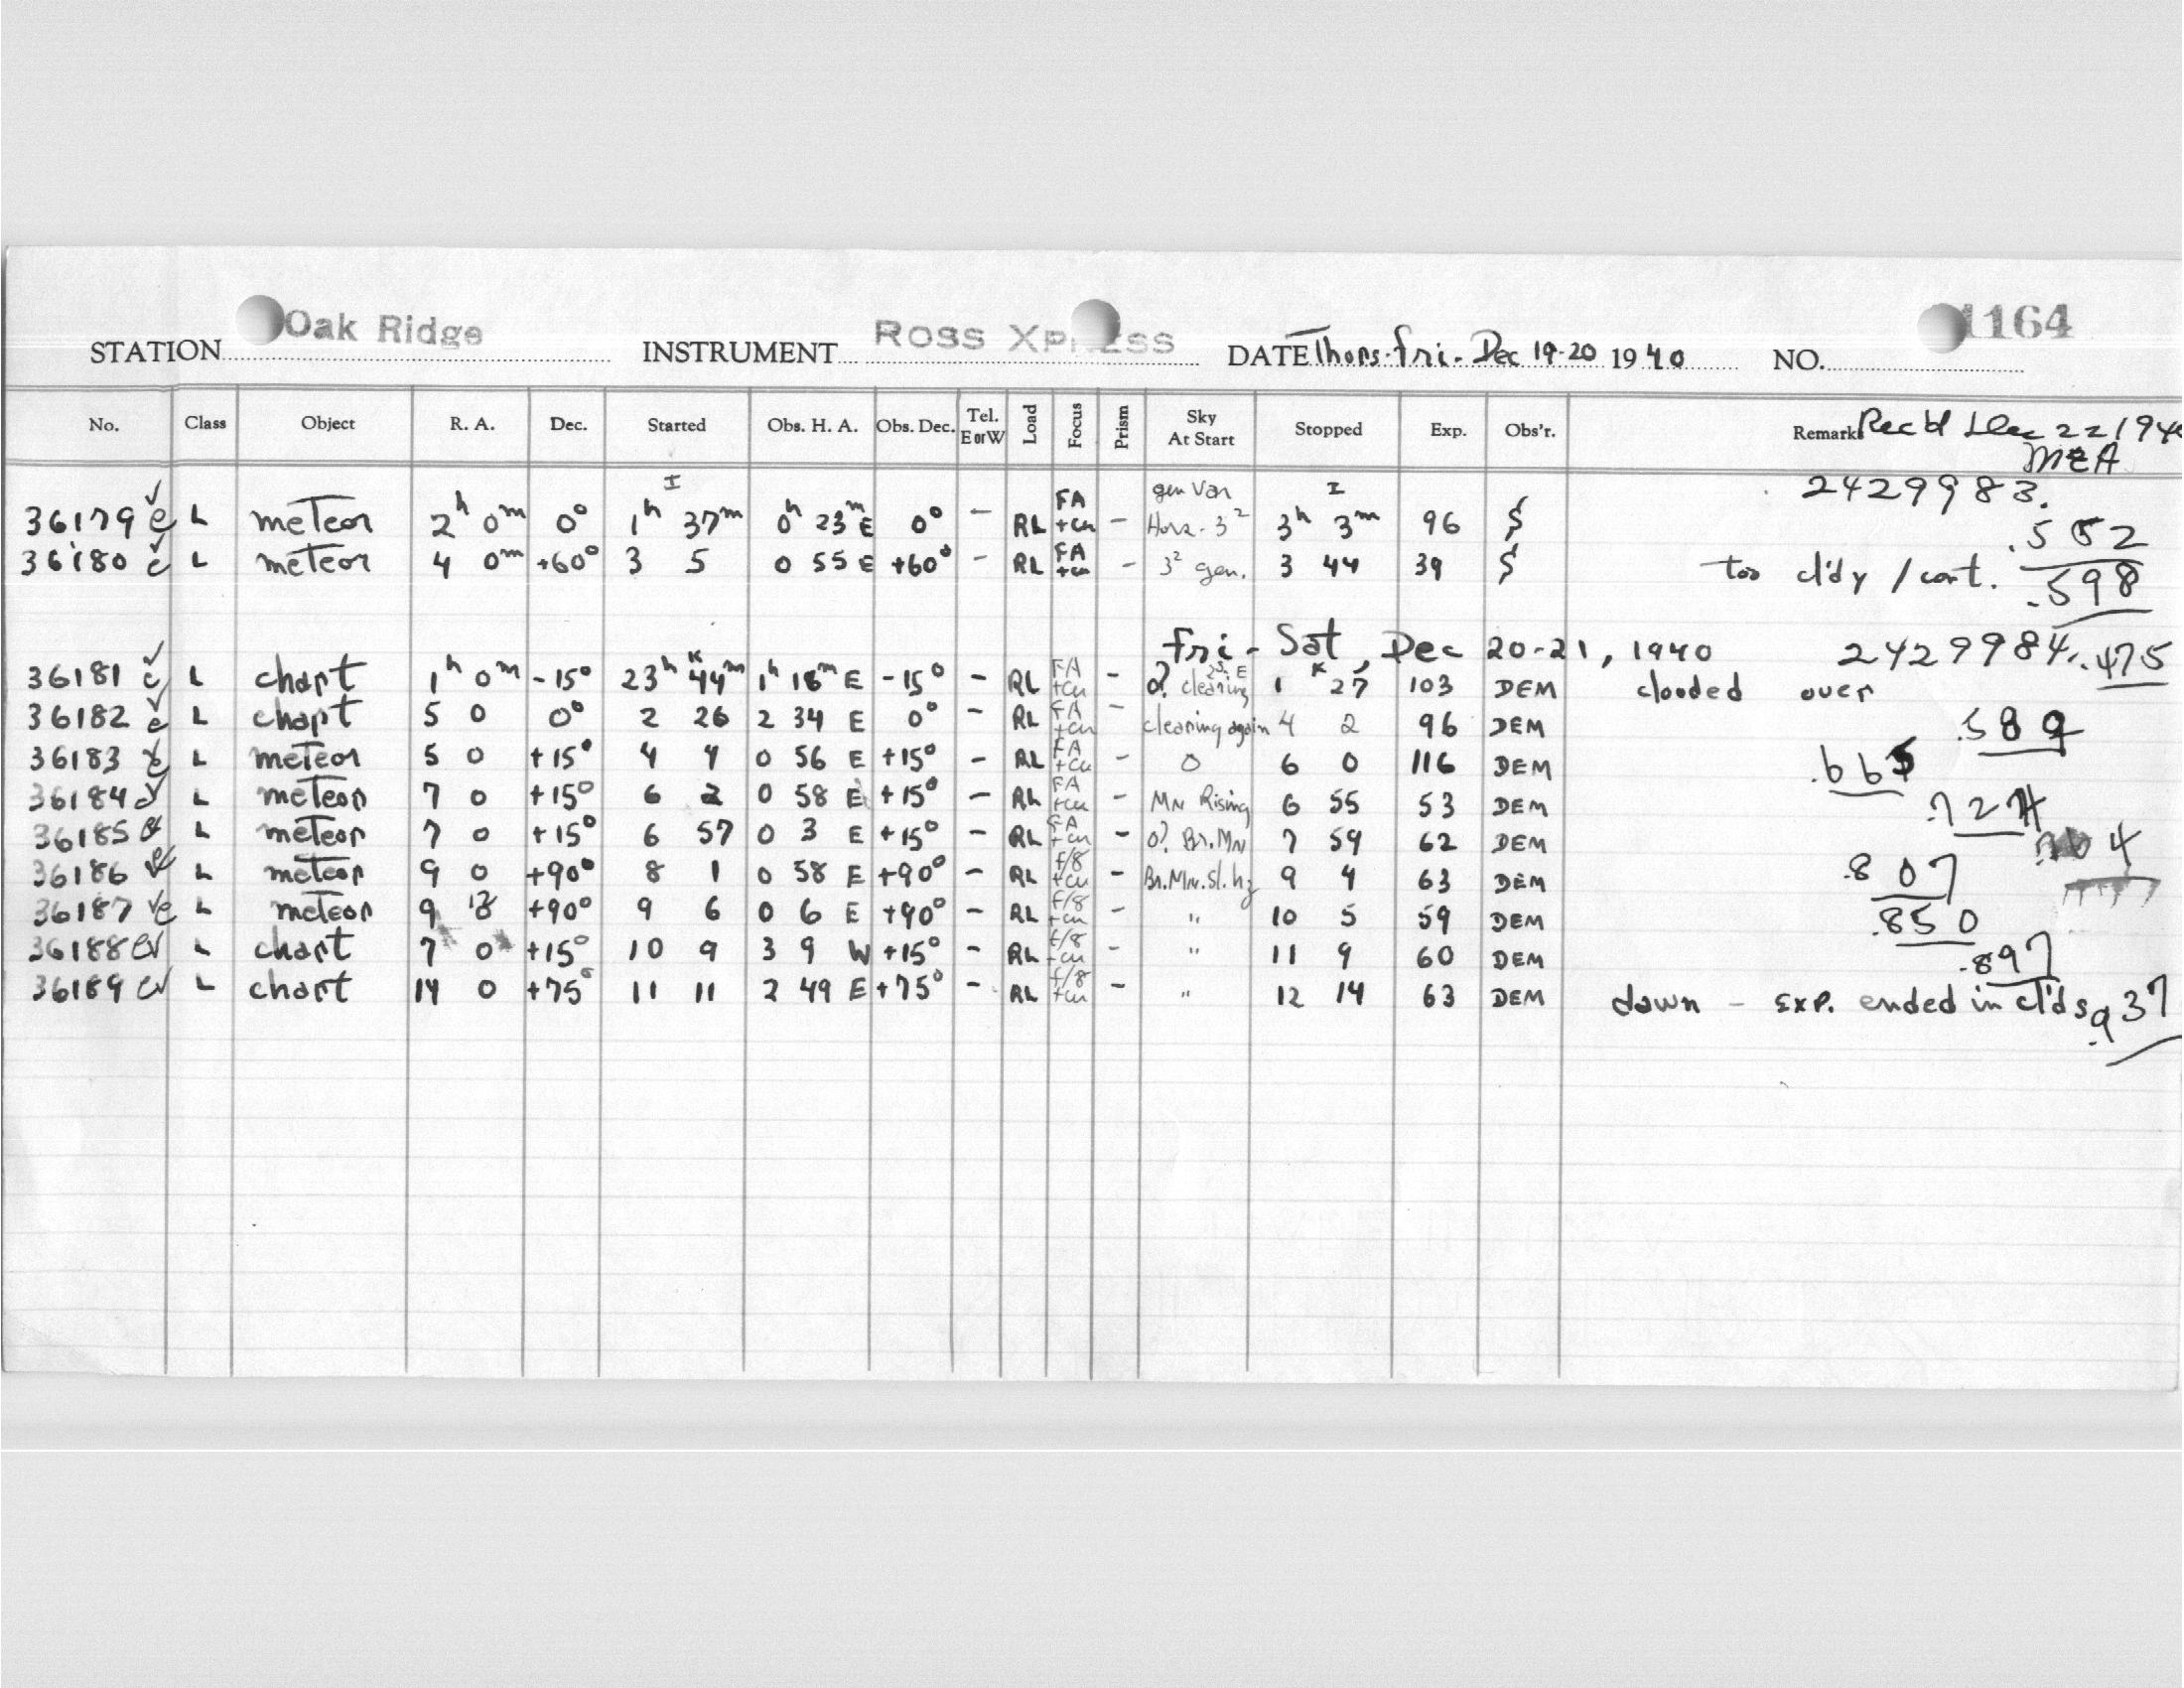 Oak Ridge ROSS XPRESS 1164
STATION INSTRUMENT DATE Thurs-Fri-Dec 19-20 1940 NO.
No. Class Object R. A. Dec. Started Obs. H. A. Obs. Dec. Tel. E or W Load Focus Prism Sky At Start Stopped Exp. Obs'r. Remarks Rec'd Dec 22 1940
MEA
I gen Var I 2429983.
36179 e L meteor 2h 0m 0° 1h 37m 0h 23m E 0° - RL FA +cu - Horz-3² 3h 3m 96 $ .552
36180 e L meteor 4 0m +60° 3 5 0 55 E +60° - RL FA +cu - 3² gen. 3 44 39 $ too cl'dy / cont. .598
Fri-Sat, Dec 20-21, 1940 2429984..475
36181 e L chart 1h 0m -15° 23h 44m 1h 18m E -15° - RL FA +cu - clearing 1 27 103 DEM clouded over
36182 e L chart 5 0 0° 2 26 2 34 E 0° - RL FA +cu - clearing again 4 2 96 DEM .589
36183 e L meteor 5 0 +15° 4 4 0 56 E +15° - RL FA +cu - 0 6 0 116 DEM .665
36184 L meteor 7 0 +15° 6 2 0 58 E +15° - RL FA +cu - MN Rising 6 55 53 DEM .724
36185 L meteor 7 0 +15° 6 57 0 3 E +15° - RL FA +cu - 0? Br.MN 7 59 62 DEM
36186 L meteor 9 0 +90° 8 1 0 58 E +90° - RL f/8 +cu - Br.MN.sl.hz 9 4 63 DEM .807
36187 e L meteor 9 +90° 9 6 0 6 E +90° - RL f/8 +cu - " 10 5 59 DEM .850
36188 e L chart 7 0 +15° 10 9 3 9 W +15° - RL f/8 +cu - " 11 9 60 DEM .897
36189 e L chart 14 0 +75° 11 11 2 49 E +75° - RL f/8 +cu - " 12 14 63 DEM dawn - Exp. ended in cl'ds .937